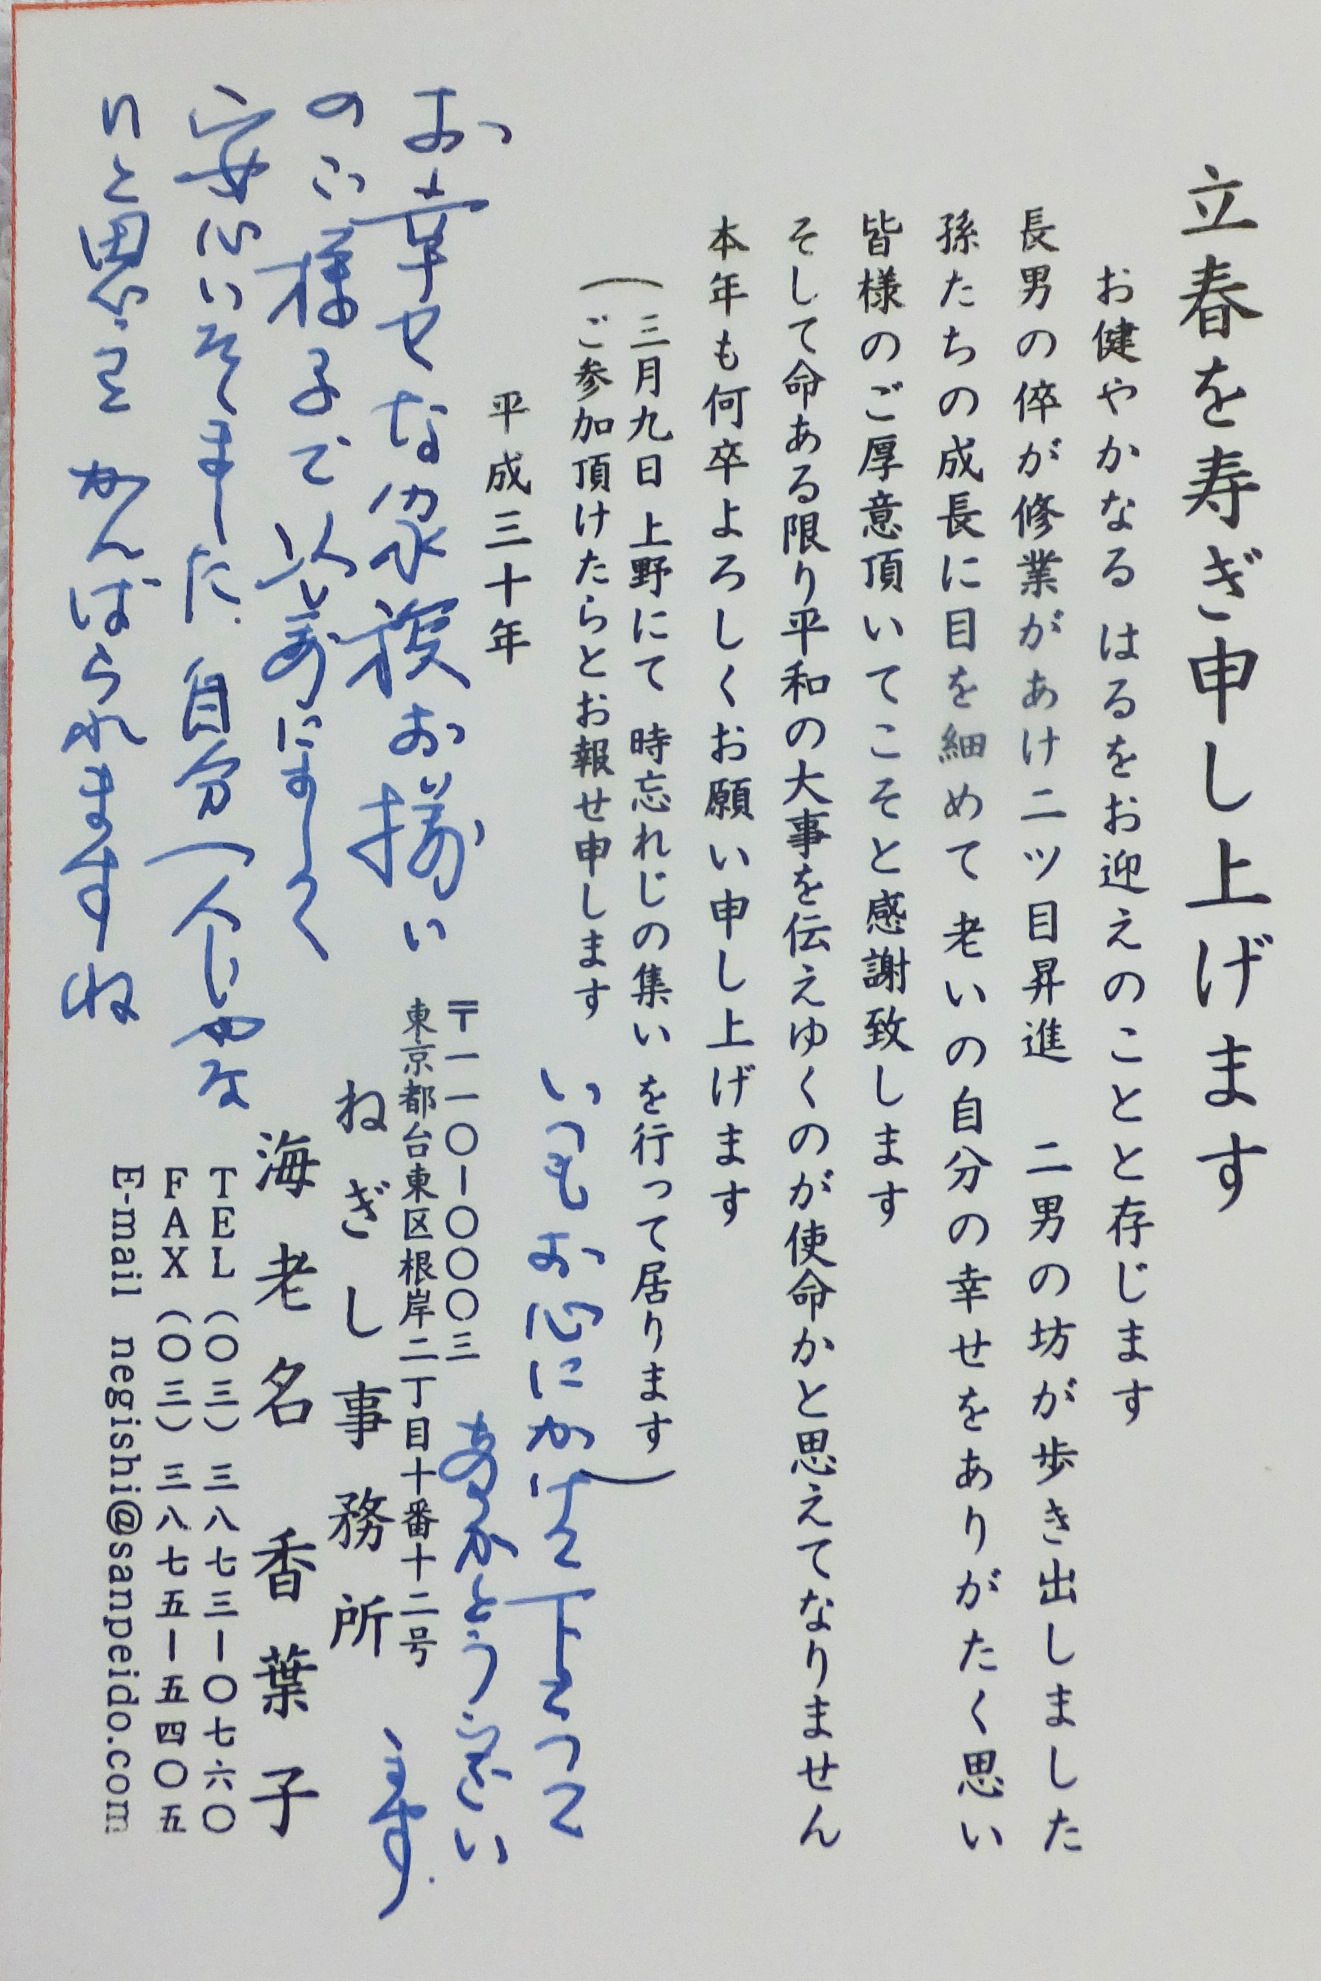 立春を寿ぎ申し上げます
お健やかなる はるをお迎えのことと存じます
長男の倅が修業があけ二ツ目昇進 二男の坊が歩き出しました
孫たちの成長に目を細めて 老いの自分の幸せをありがたく思い
皆様のご厚意頂いてこそと感謝致します
そして命ある限り平和の大事を伝えゆくのが使命かと思えてなりません
本年も何卒よろしくお願い申し上げます
(三月九日 上野にて 時忘れじの集い を行って居ります
ご参加頂けたらとお報せ申します)
平成三十年
いつもお心にかけて下さって
ありがとうござい
ます
〒一一〇ー〇〇〇三
東京都台東区根岸二丁目十番十二号
ねぎし事務所
海老名 香葉子
TEL(〇三)三八七三ー〇七六〇
FAX(〇三)三八七五ー五四〇五
E-mail negishi@sanpeido.com
お幸せな家族お揃い
のご様子で 以前にましてく
安心いたしました 自分一人じゃな
いと思うと がんばられますね